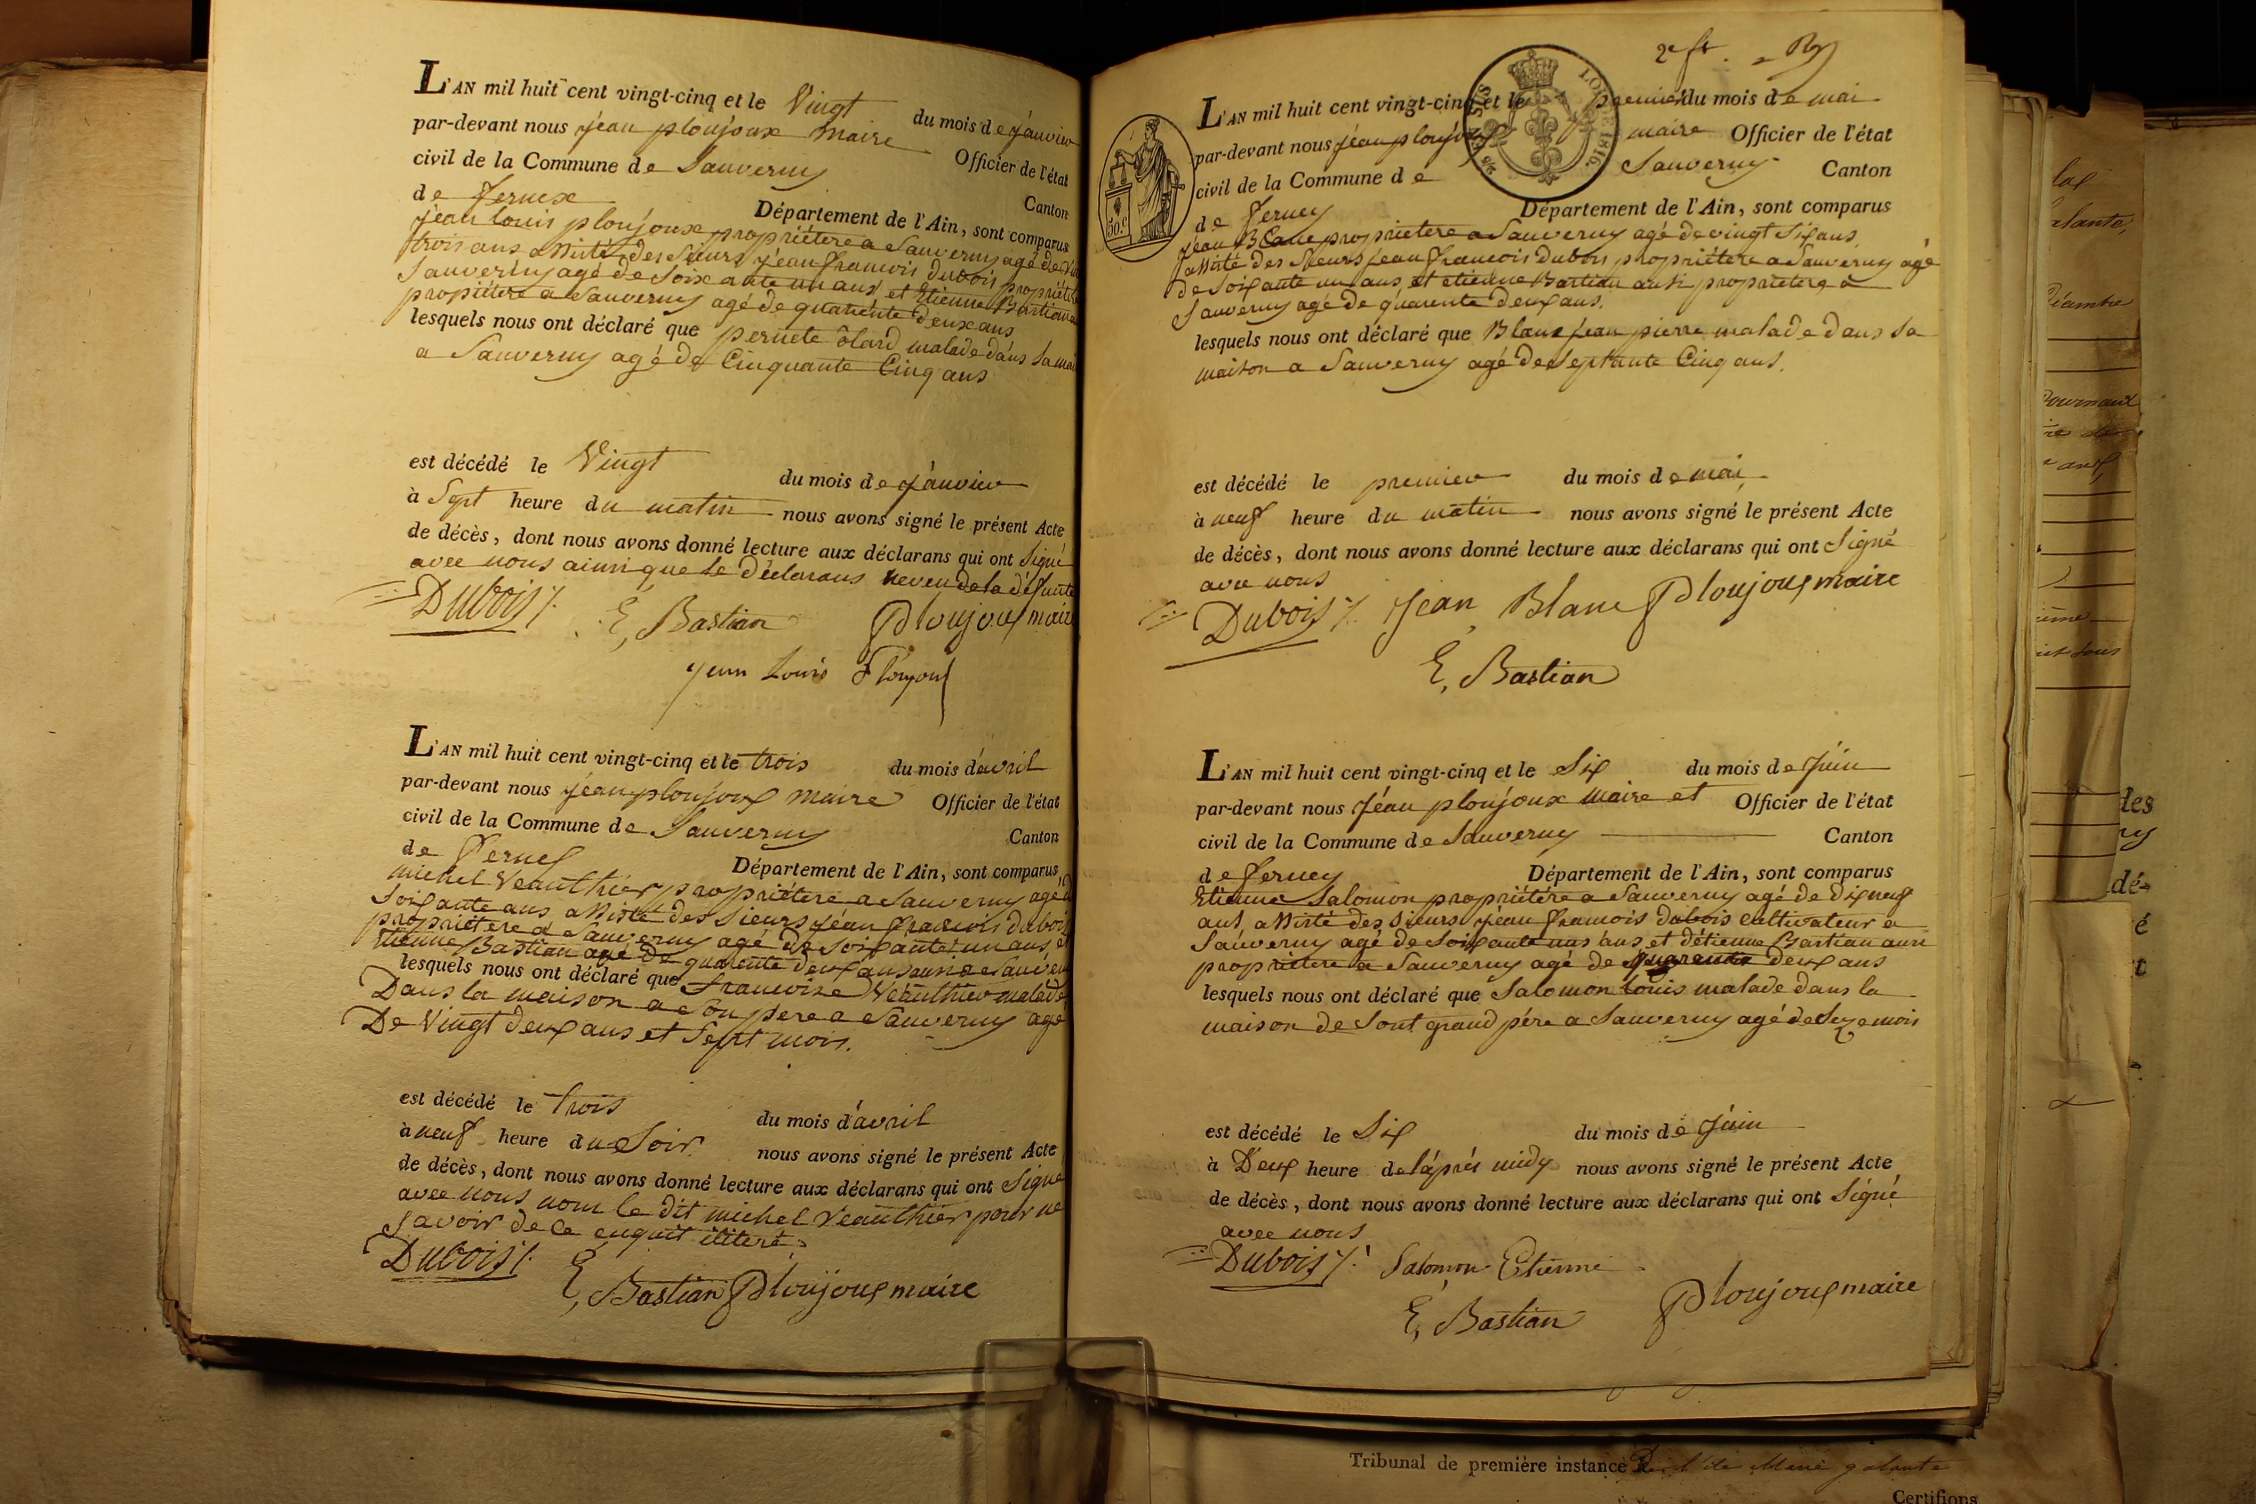 L'AN mil huit cent vingt-cinq et le Vingt du mois de janvier
par-devant nous jean ploujoux maire Officier de l'état
civil de la Commune de Sauverny Canton
de fernex Département de l'Ain, sont comparus
jean louis ploujoux propriétere a Sauverny agé de
trois ans assisté des Sieurs jean francois dubois propriétere
Sauverny agé de Soixante un ans et Etienne Bastian
propriétere a Sauverny agé de quarente deux ans
lesquels nous ont déclaré que pernete olard malade dans sa
a Sauverny agé de Cinquante Cinq ans
est décédé le Vingt du mois de janvier
à Sept heure du matin nous avons signé le présent Acte
de décès, dont nous avons donné lecture aux déclarans qui ont Signé
avec nous ainsi que le déclarans neveu de la défunte
Dubois E, Bastian Ploujoux maire
jean Louis Ploujoux
L'AN mil huit cent vingt-cinq et le trois du mois d'avril
par-devant nous jean ploujoux maire Officier de l'état
civil de la Commune de Sauverny Canton
de ferney Département de l'Ain, sont comparus
michel Veauthier propriétere a Sauverny agé
Soixante ans assisté des Sieurs jean francois dubois
propriétere a Sauverny agé de Soixante un ans et
Etienne Bastian agé de quarente deux ans
lesquels nous ont déclaré que francoise Veauthier malade
Dans la maison de Son père a Sauverny agé
De Vingt deux ans et Sept mois.
est décédé le trois du mois d'avril
à neuf heure du Soir nous avons signé le présent Acte
de décès, dont nous avons donné lecture aux déclarans qui ont Signé
avec nous nom le dit michel Veauthier pour ne
Savoir de ce enquit iliteré
Dubois E, Bastian Ploujoux maire
L'AN mil huit cent vingt-cinq et le premier du mois de mai
par-devant nous jean ploujoux maire Officier de l'état
civil de la Commune de Sauverny Canton
de ferney Département de l'Ain, sont comparus
50 c
jean Blanc propriétere a Sauverny agé de vingt Six ans,
assisté des Sieurs jean francois dubois propriétere a Sauverny agé
de Soixante un ans, et etienne Bastian ausi propriétere a
Sauverny agé de quarente deux ans.
lesquels nous ont déclaré que Blanc jean pierre malade dans sa
maison a Sauverny agé de Septante Cinq ans.
est décédé le premier du mois de mai
à neuf heure du matin nous avons signé le présent Acte
de décès, dont nous avons donné lecture aux déclarans qui ont Signé
avec nous
Dubois Jean Blanc Ploujoux maire
E, Bastian
L'AN mil huit cent vingt-cinq et le Six du mois de Juin
par-devant nous jean ploujoux maire et Officier de l'état
civil de la Commune de Sauverny Canton
de ferney Département de l'Ain, sont comparus
Etienne Salomon propriétére a Sauverny agé de dix neuf
ans, assisté des Sieurs jean francois dubois cultivateur a
Sauverny agé de Soixante uns ans et d'étienne Bastian ausi
propriétere a Sauverny agé de quarente deux ans
lesquels nous ont déclaré que Salomon louis malade dans la
maison de Sont grand pére a Sauverny agé de Seze mois
est décédé le Six du mois de Juin
à Deux heure de l'après midy nous avons signé le présent Acte
de décès, dont nous avons donné lecture aux déclarans qui ont Signé
avec nous
Dubois Salomon Etienne
E, Bastian Ploujoux maire
Tribunal de première instance
Certifions